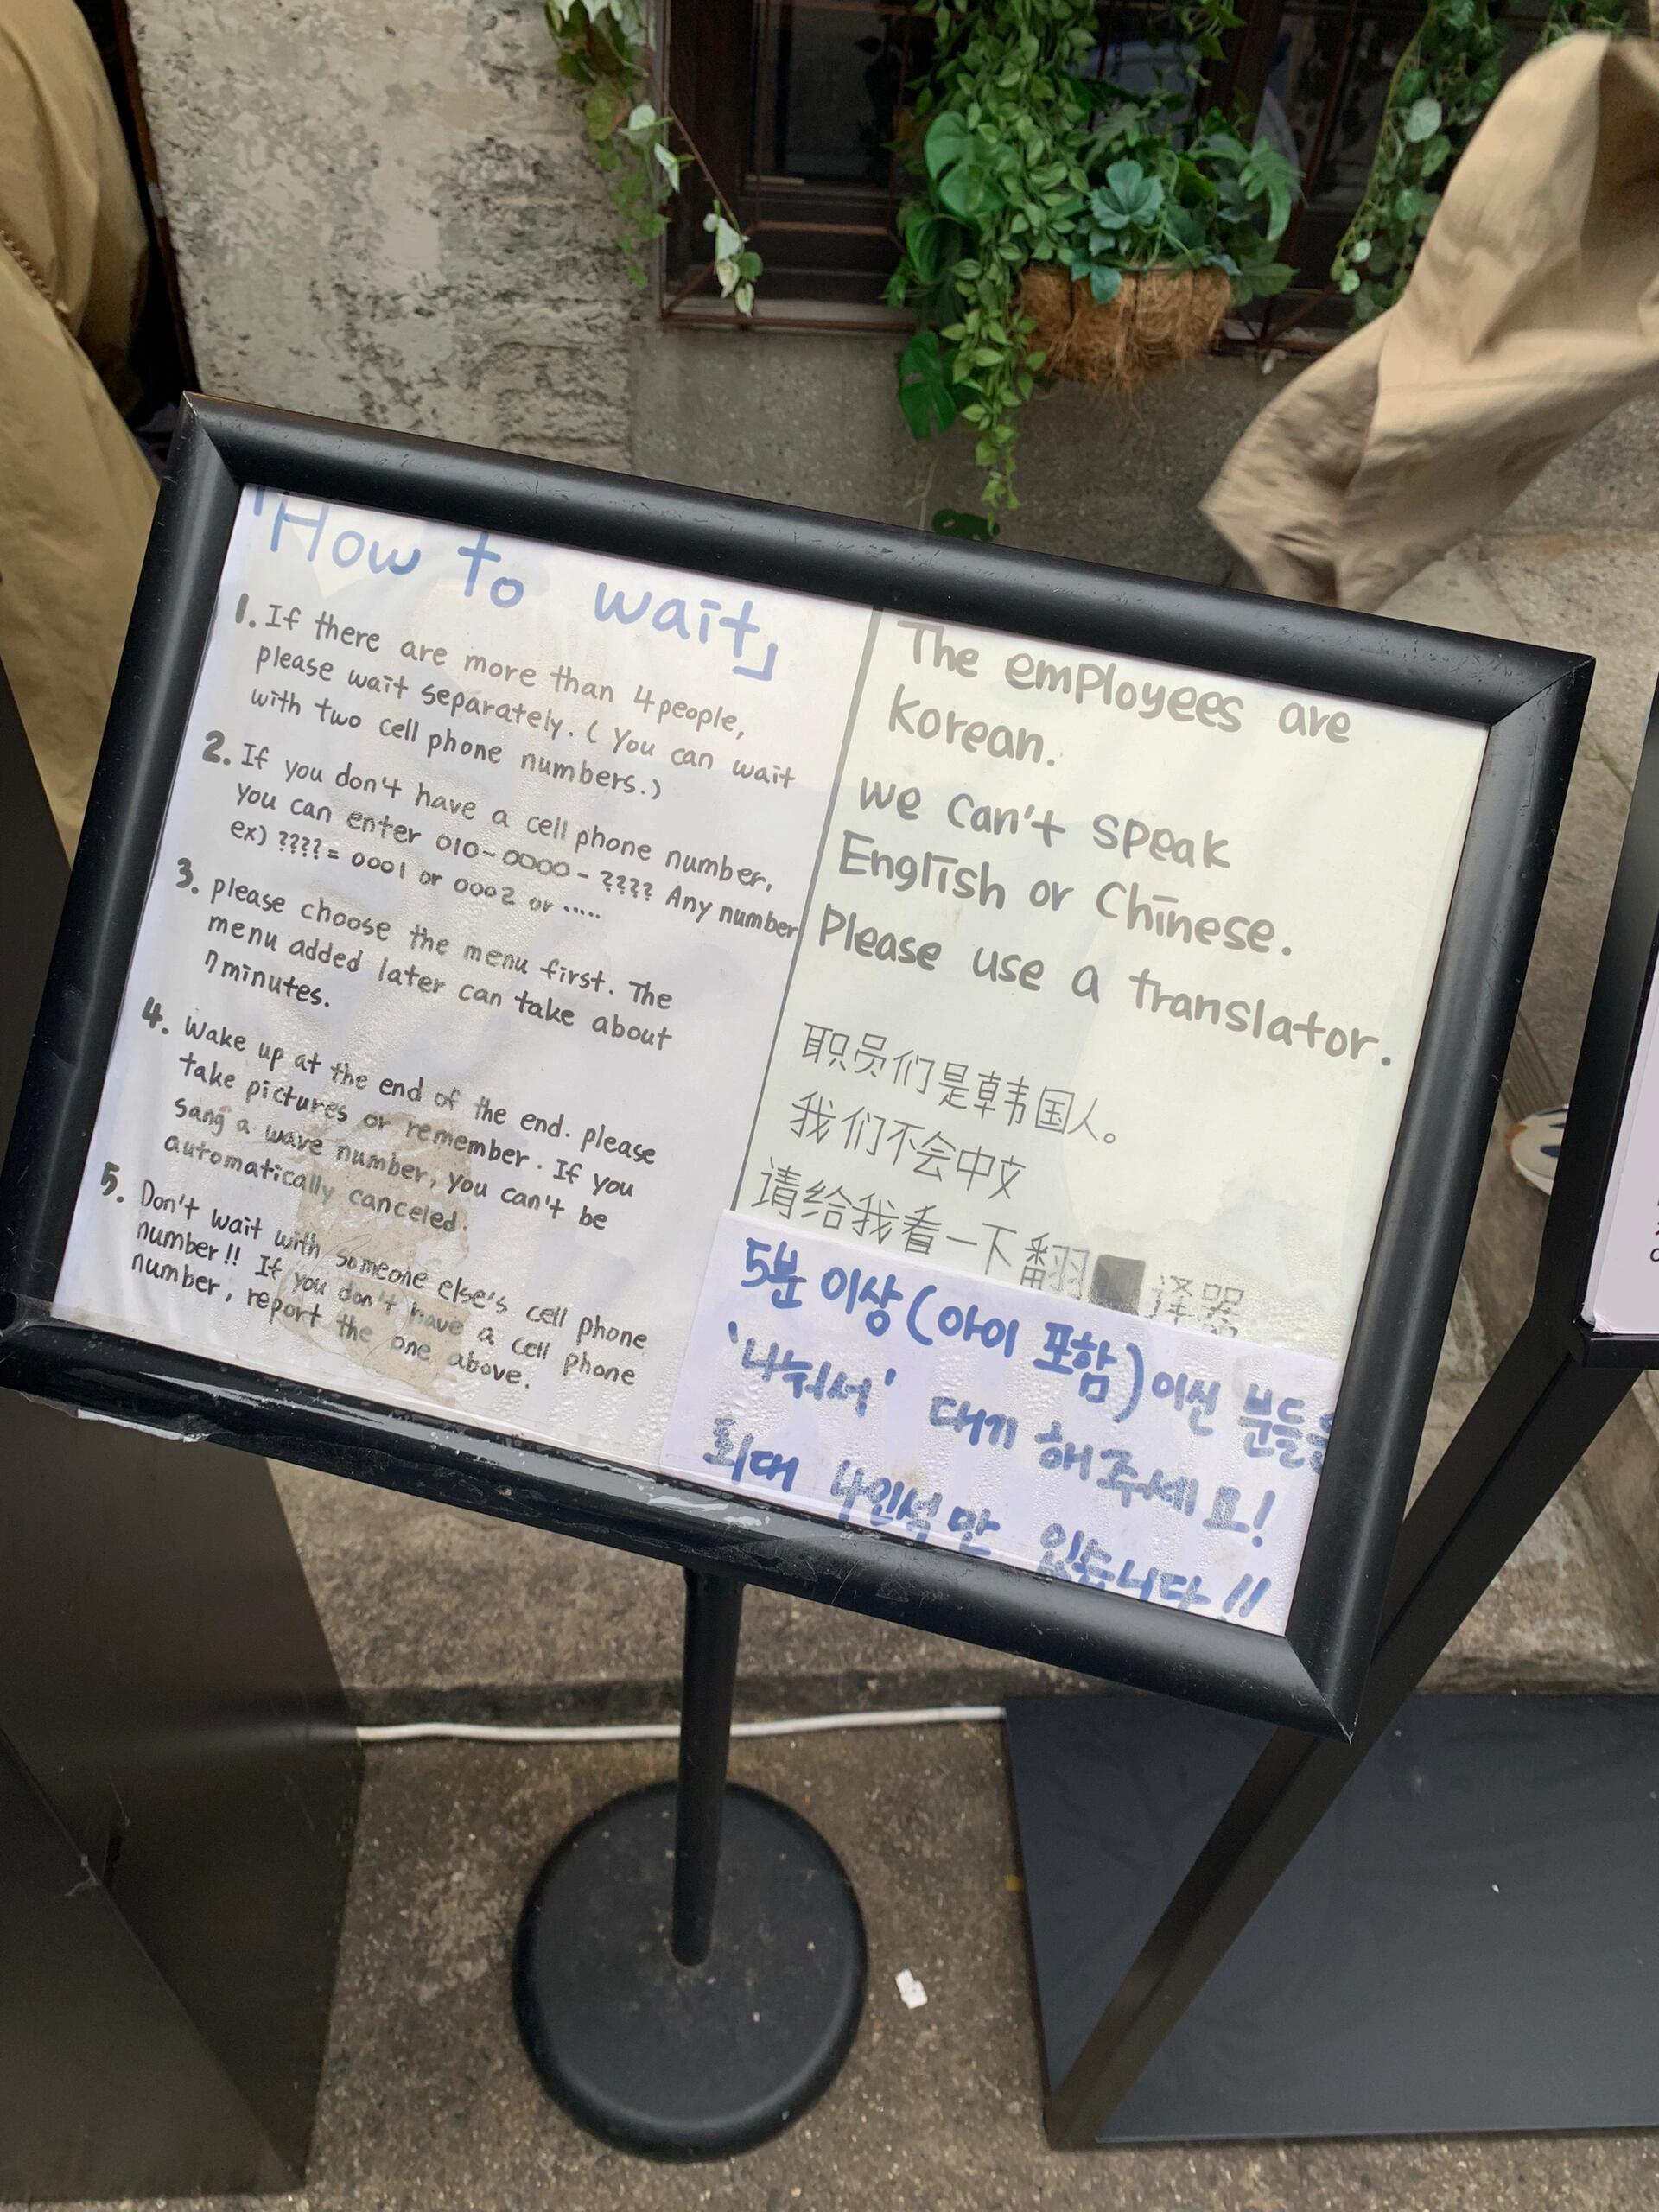 「How to wait」
1. If there are more than 4 people,
please wait separately. ( You can wait
with two cell phone numbers.)
2. If you don't have a cell phone number,
you can enter 010-0000-???? Any number
ex) ????= 0001 or 0002 or .....
3. please choose the menu first. The
menu added later can take about
7minutes.
4. Wake up at the end of the end. please
take pictures or remember. If you
sang a wave number, you can't be
automatically canceled.
5. Don't wait with someone else's cell phone
number!! If you don't have a cell phone
number, report the one above.
The employees are
korean.
we can't speak
English or Chinese.
Please use a translator.
职员们是韩国人。
我们不会中文
请给我看一下翻译器
5분 이상(아이 포함)이신 분들은
'나눠서' 대기 해주세요!
최대 4인석만 있습니다!!